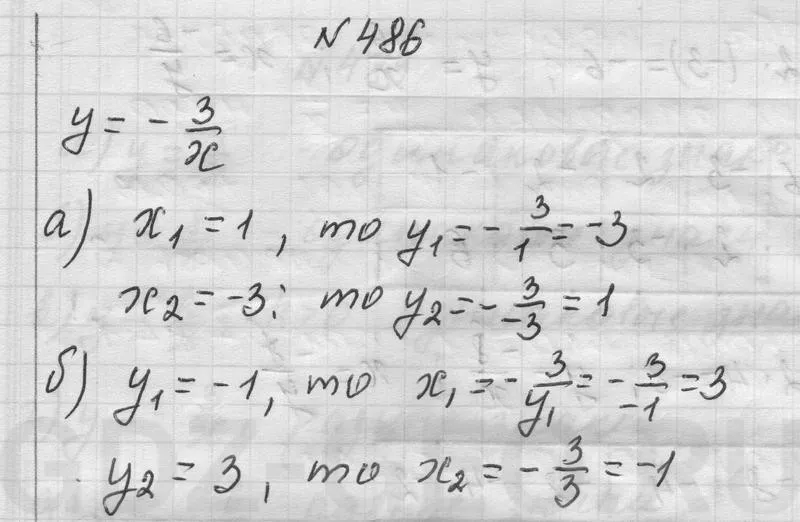 № 486
y = - 3/x
а) x₁ = 1, то y₁ = - 3/1 = -3
x₂ = -3; то y₂ = - 3/-3 = 1
б) y₁ = -1, то x₁ = - 3/y₁ = - 3/-1 = 3
y₂ = 3, то x₂ = - 3/3 = -1